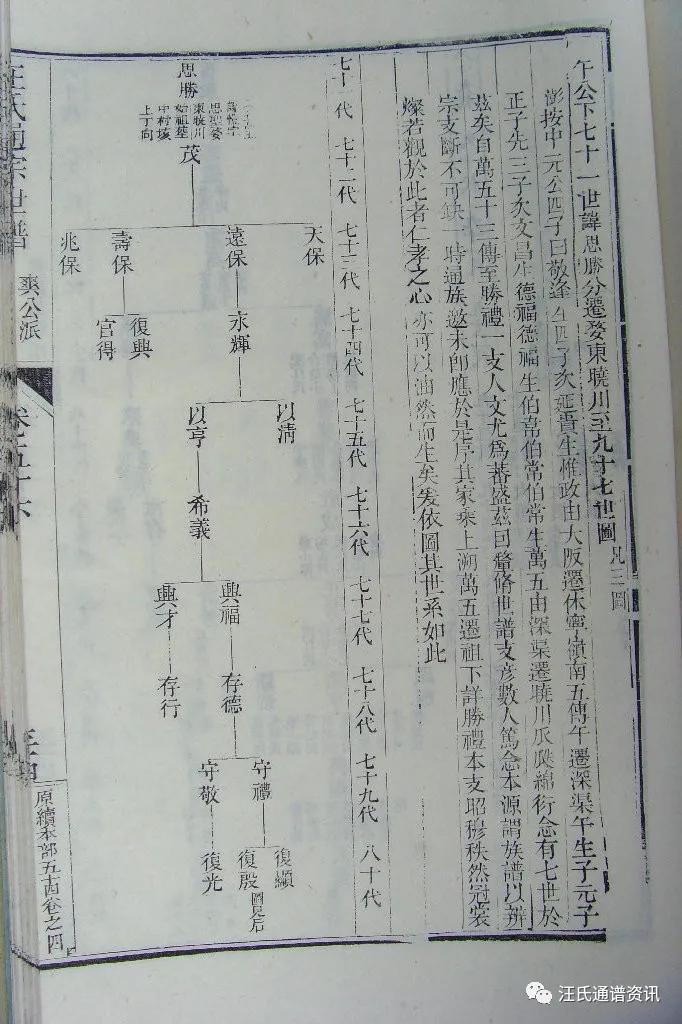 午公下七十一世諱思勝分遷婺東曉川至九十七世圖 凡三圖
澎按中元公四子曰敬逢生四子次延賓生惟政由大阪遷休寧嶺南五傳午遷深渠午生子元子
正子先三子次文昌生德福德福生伯常伯常伯常生萬五由深渠遷曉川瓜瓞綿衍念有七世於
茲矣自萬五十三傳至勝禮一支人文尤為蕃盛茲因釐脩世譜支彥數人篤念本源謂族譜以辨
宗支斷不可缺一時通族邀未即應於是序其家乘上溯萬五遷祖下詳勝禮本支昭穆秩然冠裳
燦若觀於此者仁孝之心亦可以油然而生矣爰依圖其世系如此
七十一代 七十二代 七十三代 七十四代 七十五代 七十六代 七十七代 七十八代 七十九代 八十代
思勝
思 婺
東曉川
始祖塋
中村塝
上丁向
茂
天保
遠保
壽保
兆保
永輝
復興
官得
以清
以亨
希義
興福
興才
存德
存行
守禮
守敬
復顯
復殷 圖見后
復光
汪氏通宗世譜
爽公派
卷之五十六
原續本部五十四卷之四
汪氏通谱资讯